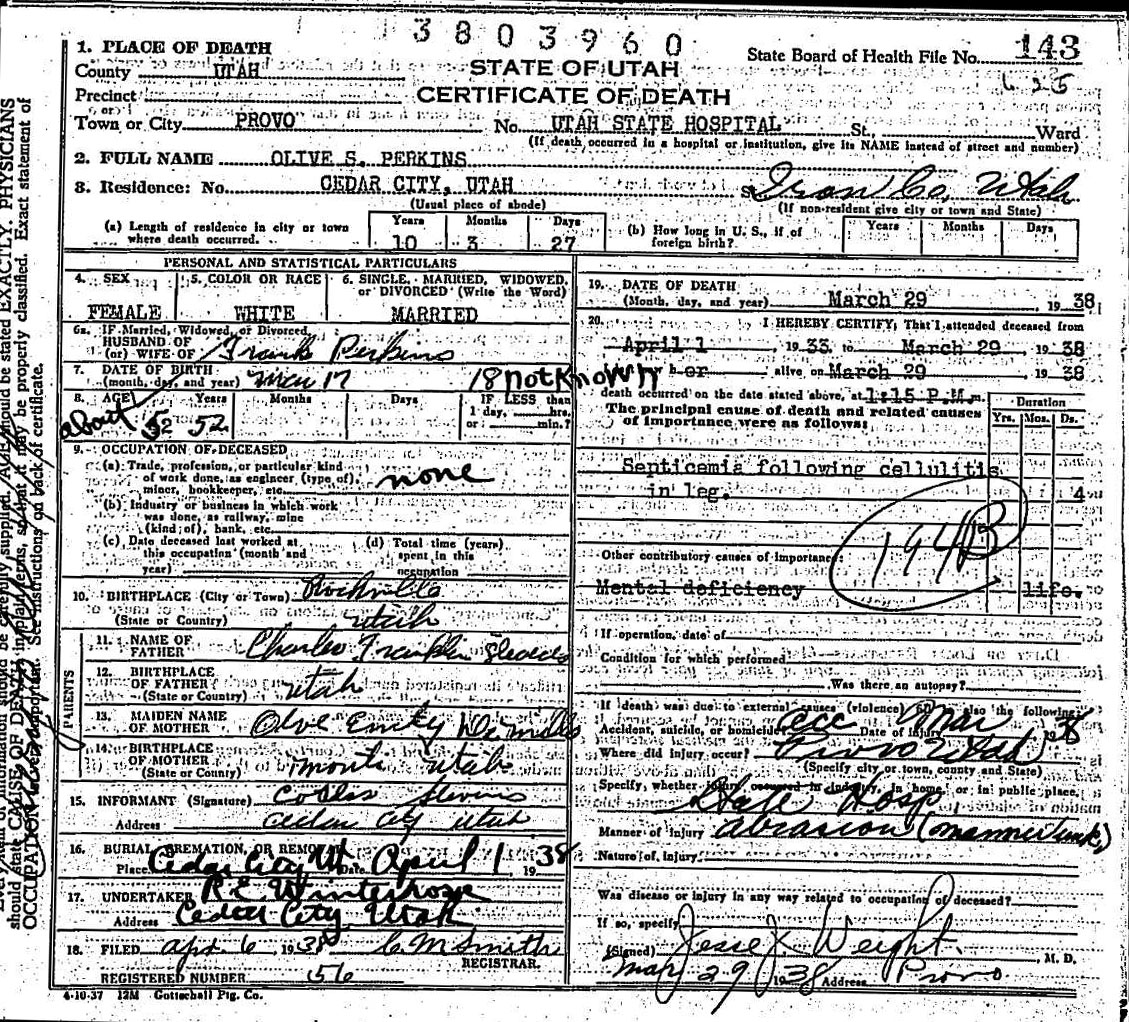 3803960
1. PLACE OF DEATH
County UTAH
Precinct
(or)
Town or City PROVO
STATE OF UTAH
CERTIFICATE OF DEATH
State Board of Health File No. 143
No. UTAH STATE HOSPITAL St., Ward
(If death occurred in a hospital or institution, give its NAME instead of street and number)
2. FULL NAME OLIVE S. PERKINS
3. Residence: No. CEDAR CITY, UTAH Iron Co, Utah
(Usual place of abode) (If non-resident give city or town and State)
(a) Length of residence in city or town where death occurred. Years 10 Months 3 Days 27
(b) How long in U. S., if of foreign birth? Years Months Days
PERSONAL AND STATISTICAL PARTICULARS
4. SEX FEMALE
5. COLOR OR RACE WHITE
6. SINGLE, MARRIED, WIDOWED, or DIVORCED (Write the Word) MARRIED
6a. IF Married, Widowed, or Divorced
HUSBAND OF
(or) WIFE OF Frank Perkins
7. DATE OF BIRTH
(month, day, and year) Mar 17 18 not known
8. AGE Years Months Days IF LESS than
1 day, hrs.
or min.?
about 52 52
9. OCCUPATION OF DECEASED
(a) Trade, profession, or particular kind
of work done, as engineer (type of),
miner, bookkeeper, etc. none
(b) Industry or business in which work
was done, as railway, mine
(kind of), bank, etc.
(c) Date deceased last worked at
this occupation (month and
year)
(d) Total time (years)
spent in this
occupation
10. BIRTHPLACE (City or Town) Rockville
(State or Country) Utah
PARENTS
11. NAME OF
FATHER Charles Franklin
12. BIRTHPLACE
OF FATHER
(State or Country) Utah
13. MAIDEN NAME
OF MOTHER Olve Emily DeMille
14. BIRTHPLACE
OF MOTHER
(State or Country) Utah
15. INFORMANT (Signature) Stevens
Address Cedar City Utah
16. BURIAL, CREMATION, OR REMOVAL
Place Cedar City Ut Date April 1, 1938
17. UNDERTAKER R E Winterrose
Address Cedar City Utah
18. FILED Apr 6 1938 C. M Smith
REGISTRAR.
REGISTERED NUMBER 56
4-10-37 12M Gottschall Ptg. Co.
19. DATE OF DEATH
(Month, day, and year) March 29, 1938
20. I HEREBY CERTIFY, That I attended deceased from
April 1, 1933 to March 29, 1938
her alive on March 29 1938
death occurred on the date stated above, at 1:15 P.M. m.
The principal cause of death and related causes
of importance were as follows:
Duration
Yrs. Mos. Ds.
Septicemia following cellulitis
in leg. 4
194B
Other contributory causes of importance:
Mental deficiency life.
If operation, date of
Condition for which performed
Was there an autopsy?
If death was due to external causes (violence) also the following:
Accident, suicide, or homicide? Acc Date of injury Mar 1938
Where did injury occur? Provo Utah
(Specify city or town, county and State)
Specify, whether injury occurred in industry, in home, or in public place.
State Hosp.
Manner of injury abrasion (manner unk.)
Nature of injury
Was disease or injury in any way related to occupation of deceased?
If so, specify
(Signed) Jesse J Weight, M. D.
Mar 29 1938 Address Provo
should state CAUSE OF DEATH in plain terms, so that it may be properly classified. Exact statement of
See instructions on back of certificate.